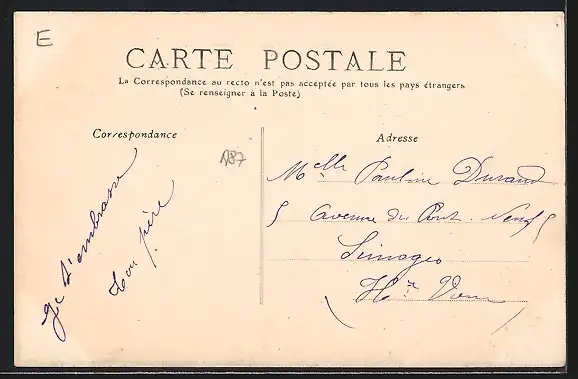 E
CARTE POSTALE
La Correspondance au recto n'est pas acceptée par tous les pays étrangers
(Se renseigner à la Poste)
Correspondance
Adresse
A87
Je t'embrasse
Ton père
Melle Pauline Durand
5 avenue du Pont-Neuf 5
Limoges
(Hte Vienne)